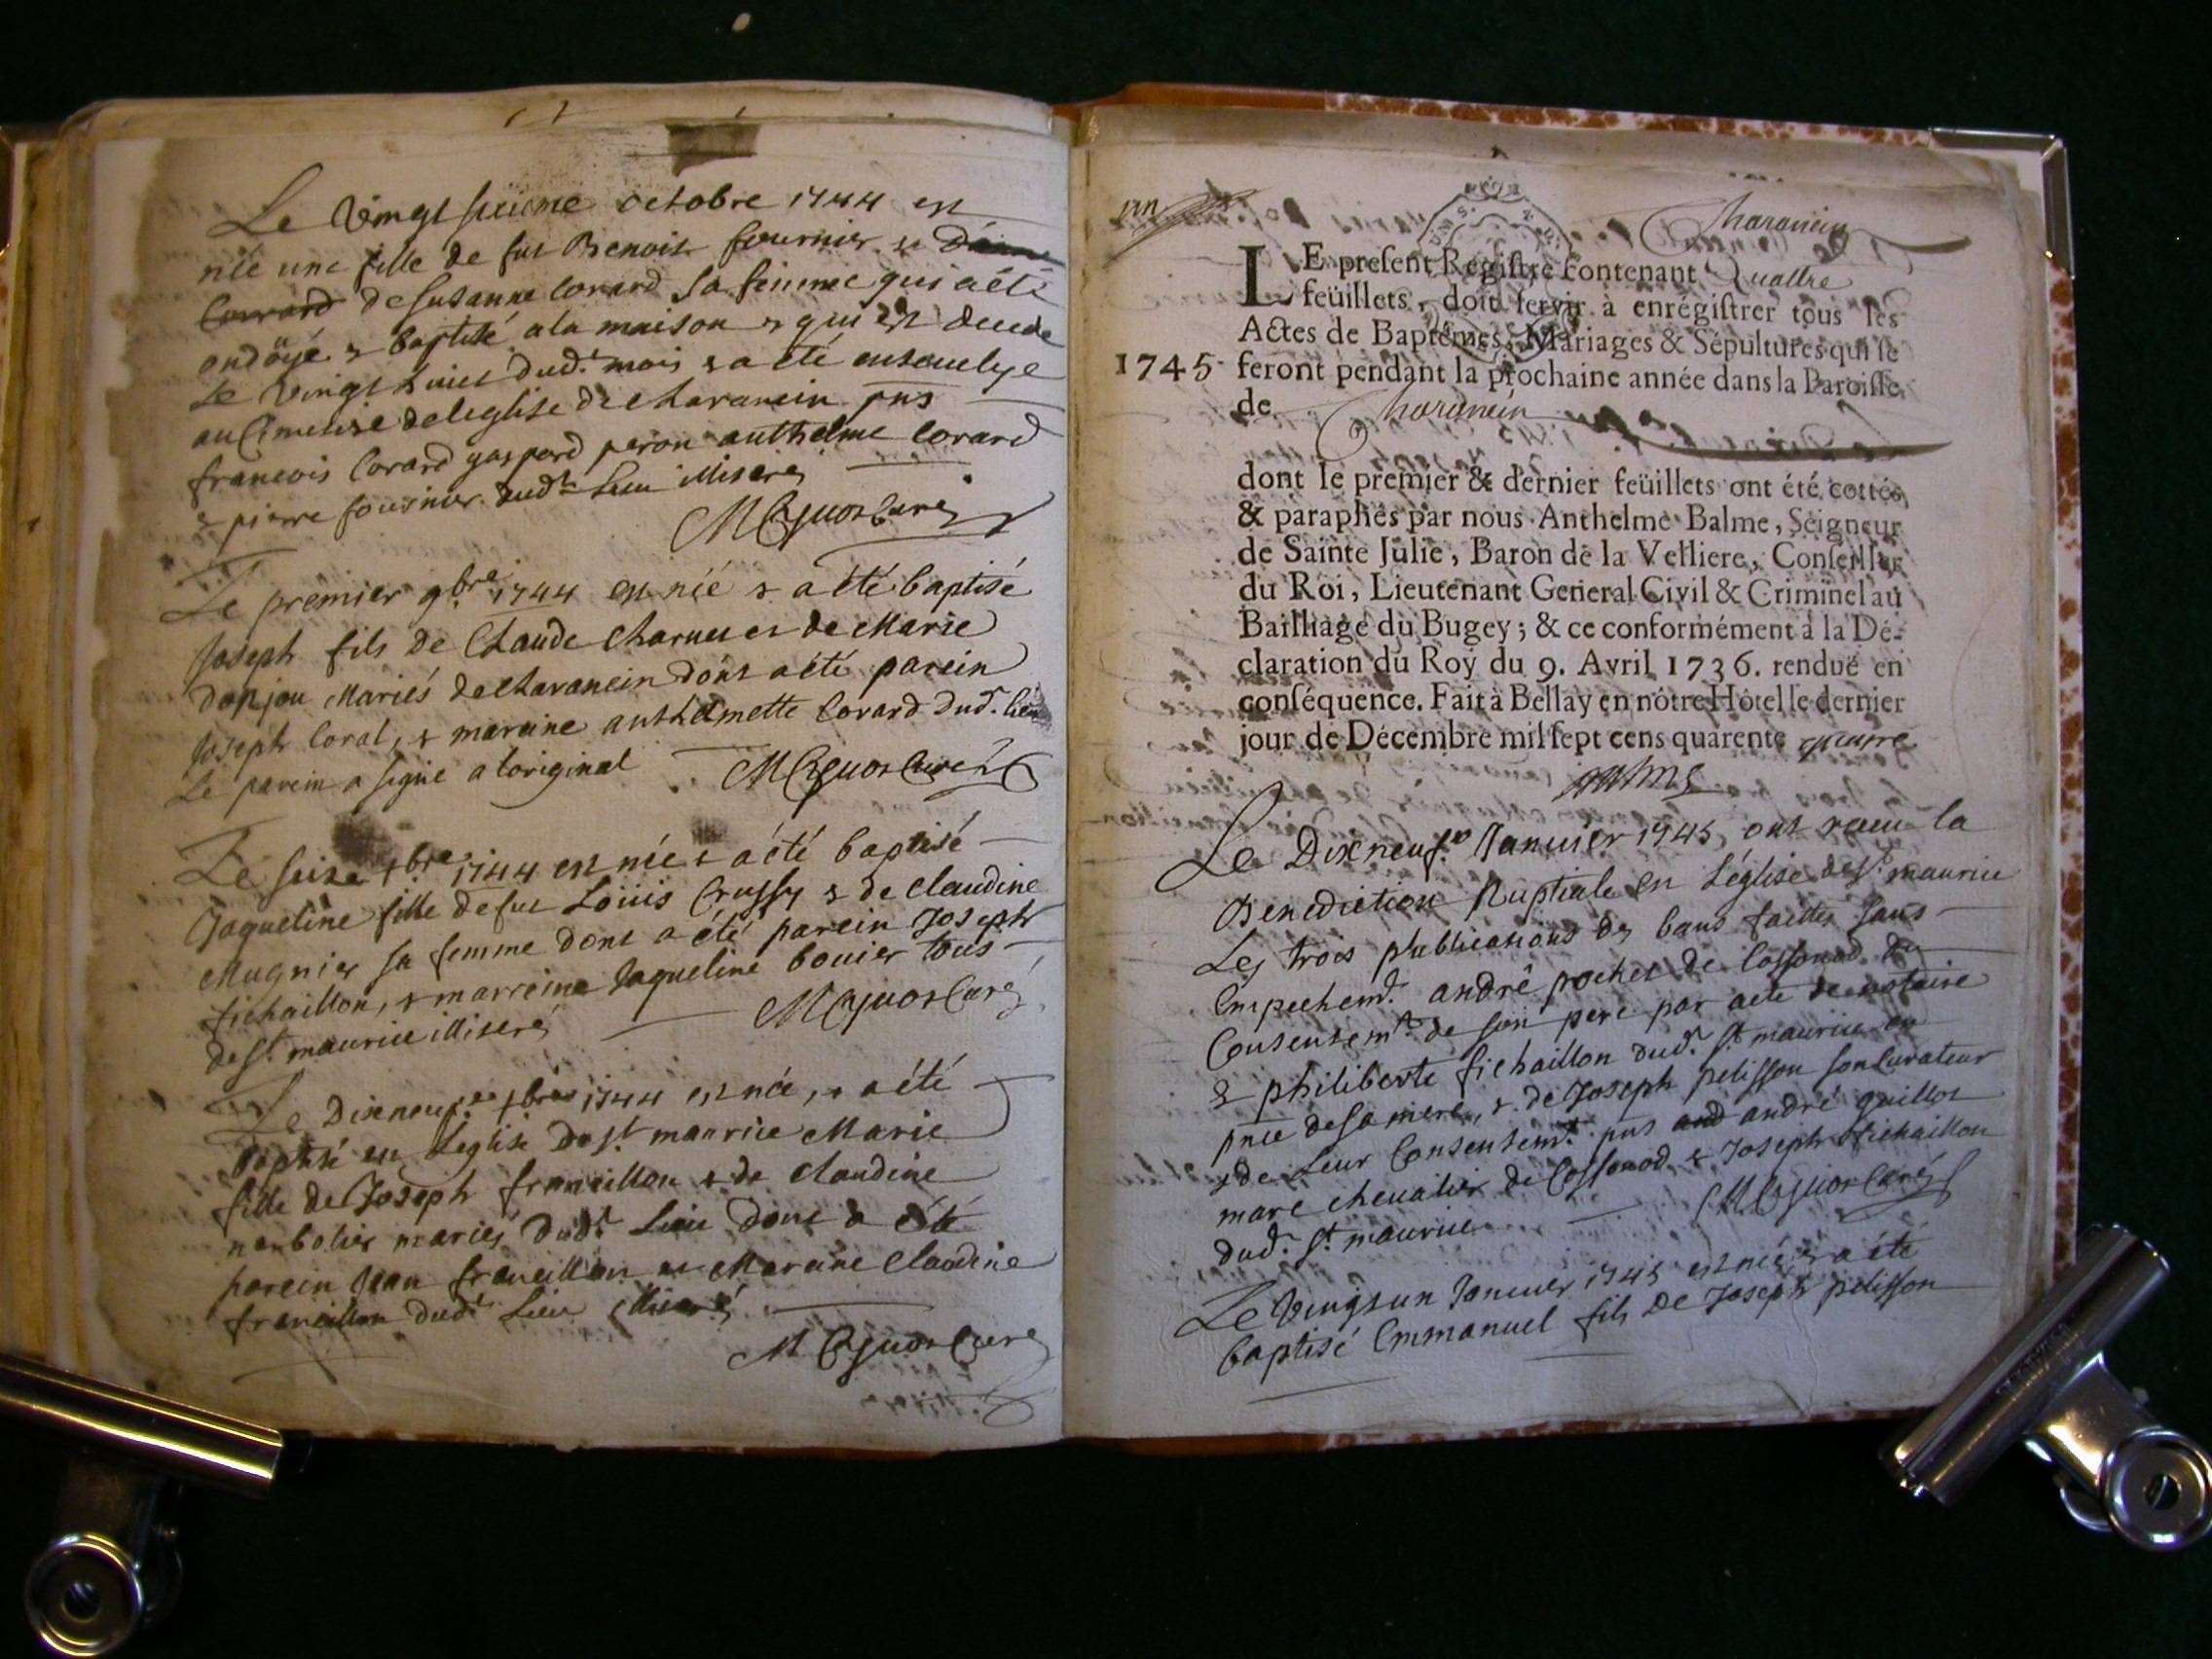 Le vingt sixieme octobre 1744 est
née une fille de fut Benoit fournier et
de Susanne Corard sa femme qui a été
ondoÿé & baptisé a la maison & qui est decede
Le vingt huict dud.t mois & a été ensevelye
au Cimetire de leglise de charancin pns
francois Corard gaspard peron anthelme Corard
& pierre fournier dud.t Lieu illiserés
Curé
Le premier 9.bre 1744 est née & a été baptisé
Joseph fils de Claude Charuet et de Marie
Donjou Mariés de charancin dont a été parein
Joseph Coral, & mareine anthelmette Corard dud.t lieu
Le parein a signé a loriginal Curé
Le seize 1744 est née & a été baptisé
Jaqueline fille de fut Loüis Crussy & de claudine
Mugnier sa femme dont a été parein Joseph
fichaillon, & marreine Jaqueline bouier tous
de S.t maurice illiserés Curé
Le Dixneuf.e 1744 est née, & a été
baptisé en Leglise de S.t maurice Marie
fille de Joseph francillon & de claudine
mariés dud.t Lieu dont a été
parein Jean francillon et Mareine Claudine
francillon dud.t Lieu illiserés
Curé
Charancin
LE present Registre contenant Quattre
feüillets, doit servir à enrégistrer tous les
Actes de Baptêmes, Mariages & Sépultures qui se
1745 feront pendant la prochaine année dans la Paroisse
de Charancin
dont le premier & dernier feüillets ont été cottés
& paraphés par nous Anthelme Balme, Seigneur
de Sainte Julie, Baron de la Velliere, Conseiller
du Roi, Lieutenant General Civil & Criminel au
Bailliage du Bugey; & ce conformément à la Dé-
claration du Roy du 9. Avril 1736. renduë en
conséquence. Fait à Bellay en nôtre Hôtel le dernier
jour de Décembre mil sept cens quarente quatre
Balme
Le Dixneuf.e Januier 1745 ont receu la
Benediction Nuptiale en Léglise de S.t maurice
Les trois publications des bans faittes sans
Empechem.t andré pochet de Cossonod du
Consentem.t de son pere par acte de notaire
& philiberte fichaillon dud.t S.t maurice en
pnce de sa mere, & de Joseph pelisson son Curateur
& de Leur Consentem.t pns andré guillot
marc chevalier de Cossonod & Joseph fichaillon
dud.t S.t maurice Curé
Le Vingt un Januier 1745 est née & a été
baptisé Emmanuel fils de Joseph pelisson